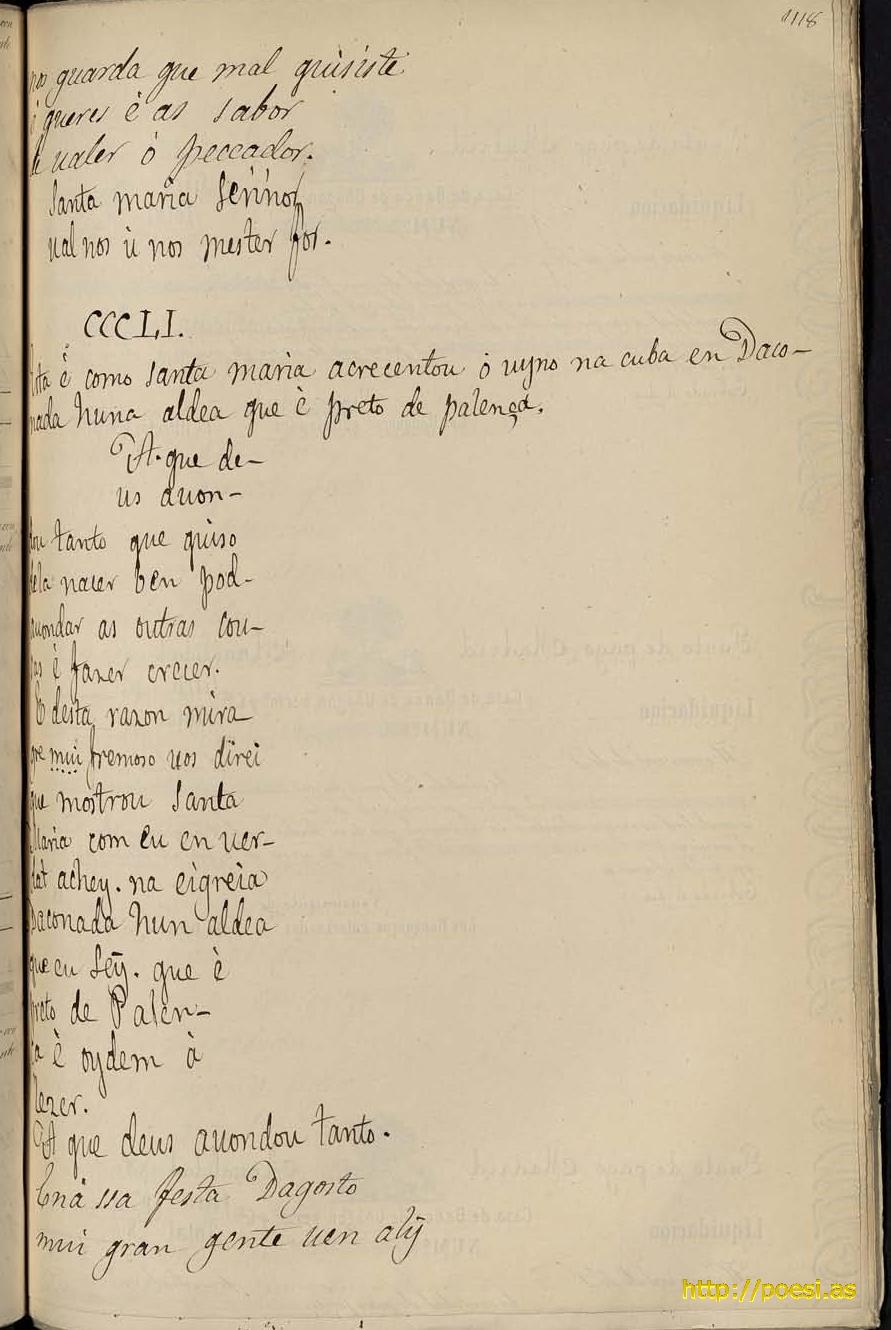 1118
nos guarda que mal quisiste
queres è as sabor
ualer ò peccador.
Santa maria Sennor
ual nos ù nos mester for.
CCCLI.
Esta è como santa maria acrecentou ó uyno na cuba en Daco-
nada huna aldea que è preto de palença.
A que de-
us auon-
dou tanto que quiso
dela nacer ben pod-
auondar as outras cou-
sas è fazer crecer.
E desta razon mira
gre mui fremoso uos direi
que mostrou Santa
Maria com eu en uer-
dat achey. na eigreia
Daconada hun aldea
que eu sey. que è
preto de Palen-
ça è oydem à
lezer.
A que deus auondou tanto.
Ena ssa festa Dagosto
mui gran gente uen alý
http://poesi.as